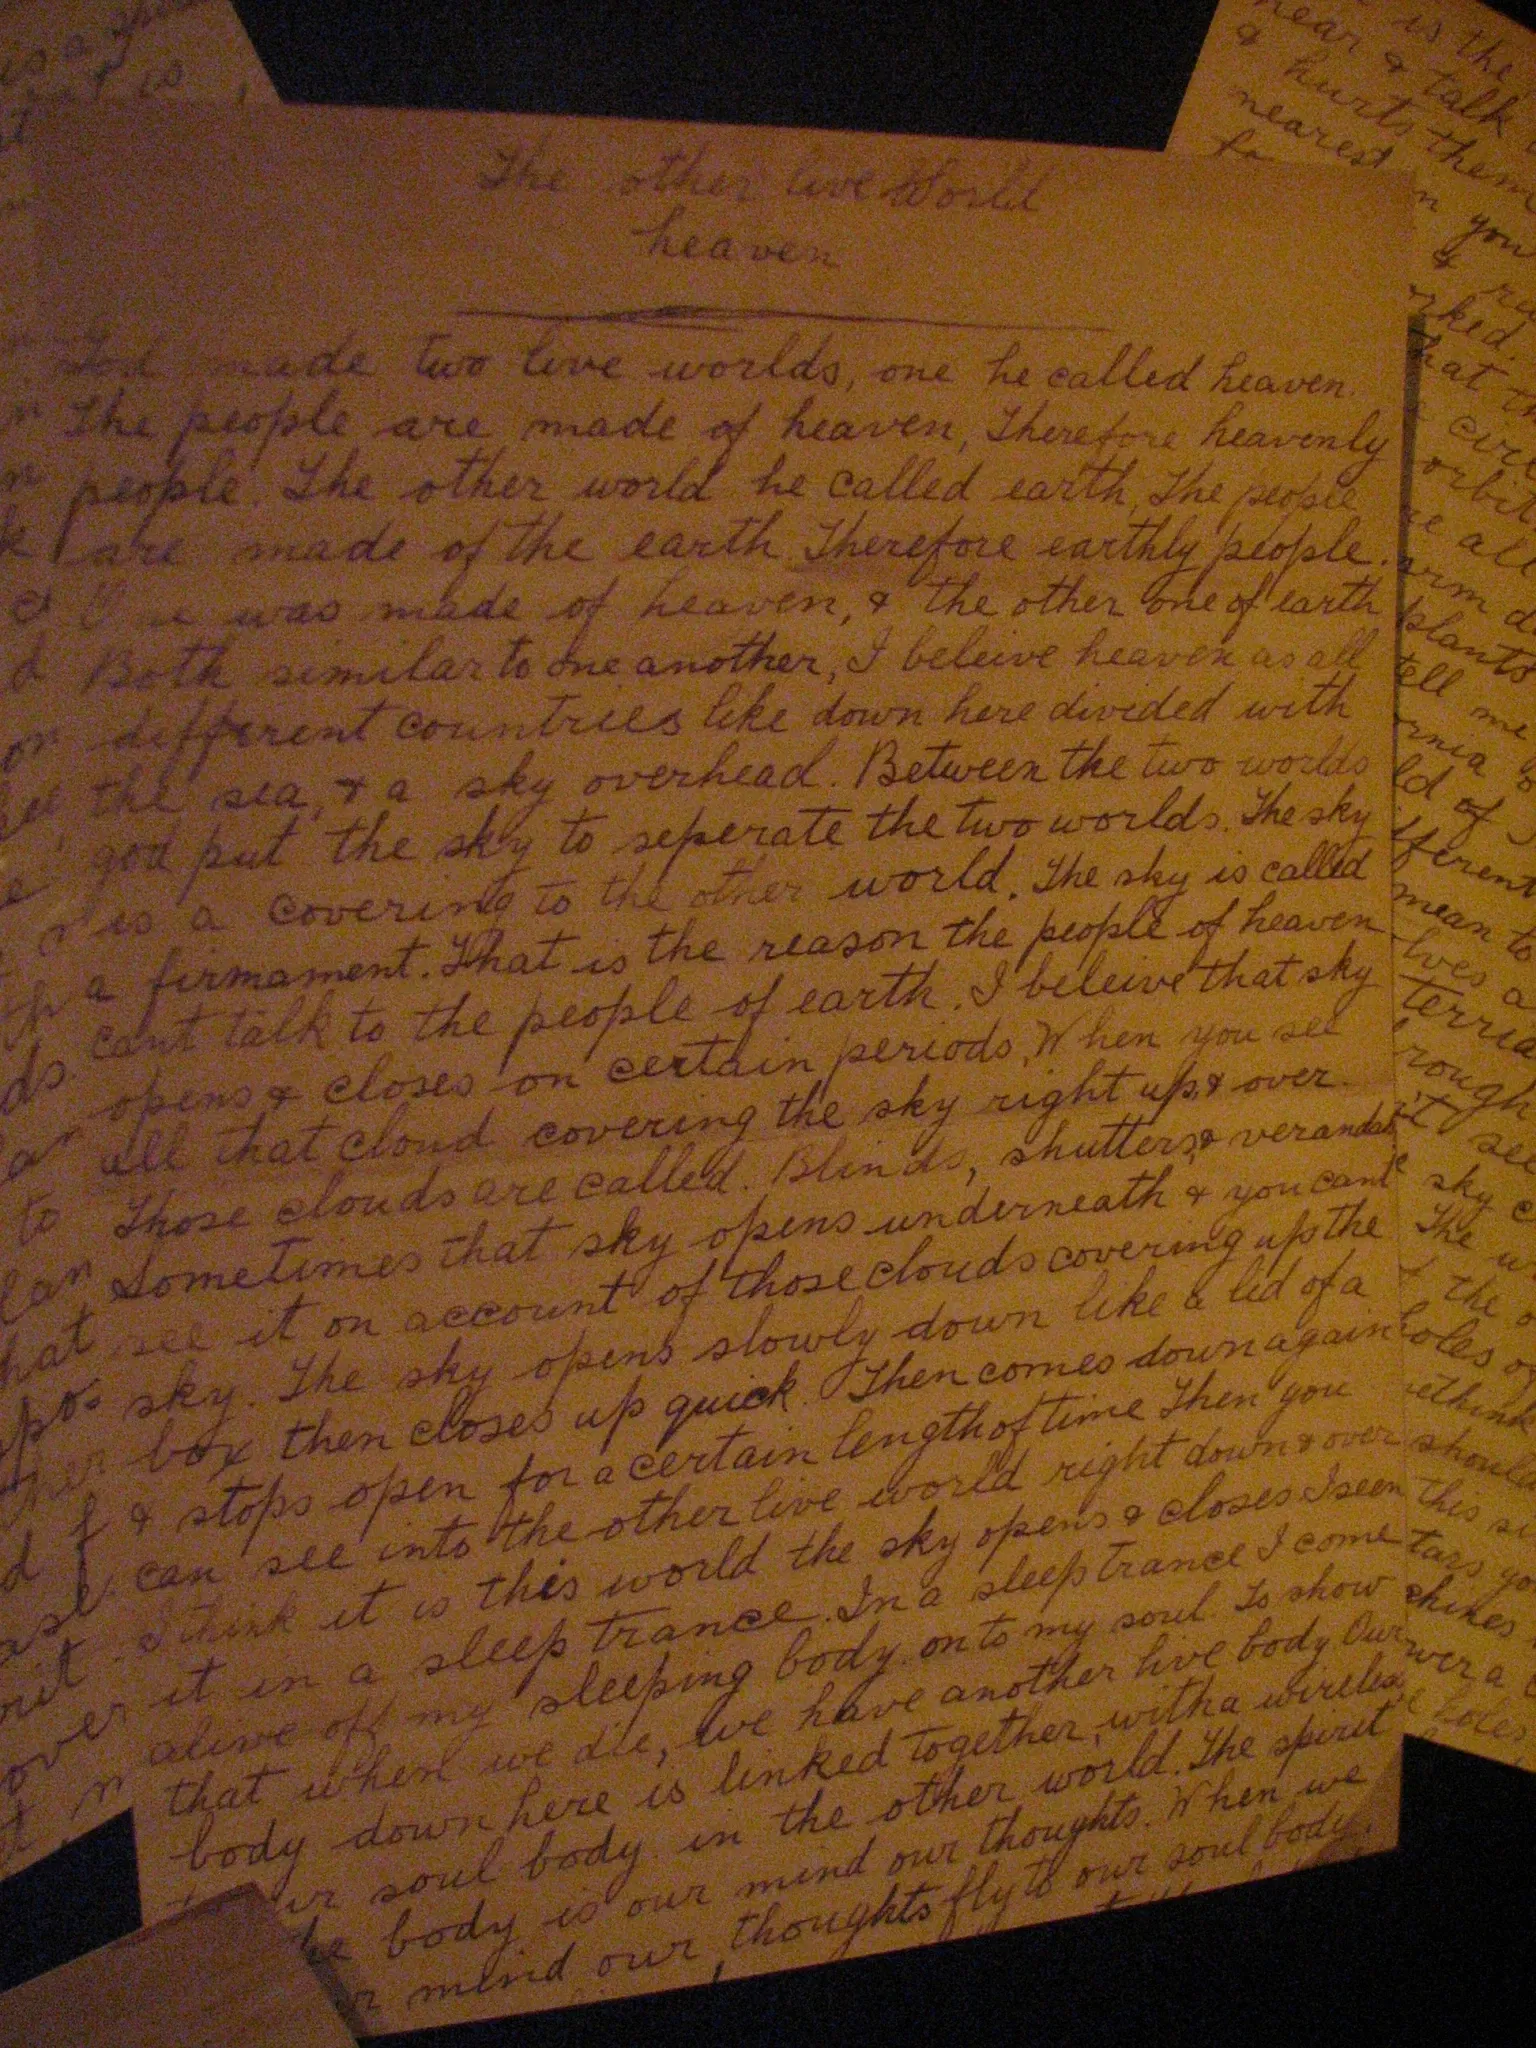 The other live World
heaven
God made two live worlds, one he called heaven.
The people are made of heaven, Therefore heavenly
people. The other world he called earth, The people
are made of the earth Therefore earthly people.
One was made of heaven, & the other one of earth
Both similar to one another, I beleive heaven as all
different countries like down here divided with
the sea, & a sky overhead. Between the two worlds
god put the sky to seperate the two worlds. The sky
is a covering to the other world. The sky is called
a firmament. That is the reason the people of heaven
cant talk to the people of earth. I beleive that sky
opens & closes on certain periods, When you see
all that cloud covering the sky right up, & over
Those clouds are called. Blinds, shutters, & verandah
Sometimes that sky opens underneath & you cant
see it on account of those clouds covering up the
sky. The sky opens slowly down like a lid of a
box then closes up quick. Then comes down again
& stops open for a certain length of time Then you
can see into the other live world right down & over
I think it is this world the sky opens & closes I seen
it in a sleep trance. In a sleep trance I come
alive off my sleeping body. on to my soul. To show
that when we die, we have another live body Our
body down here is linked together, with a wireless
soul body in the other world. The spirit
body is our mind our thoughts. When we
mind our thoughts fly to our soul body.
is the
near & talk
& hurts them
nearest
you
&
that
orbit
all
plants
tell me
of
mean to
see
sky
The
& the
think
should
this